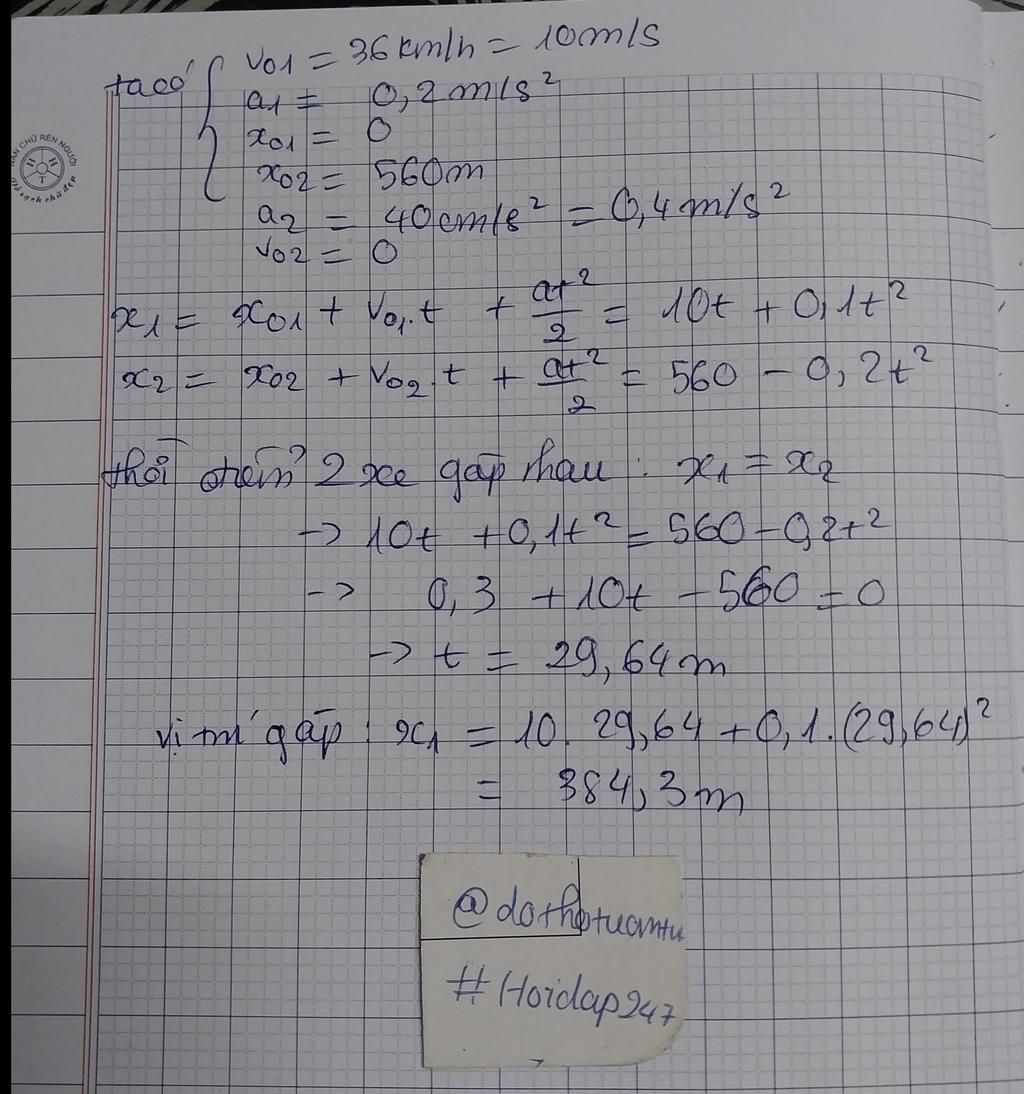 ta có { v01 = 36km/h = 10m/s
a1 = 0,2m/s²
x01 = 0
x02 = 560m
a2 = 40cm/s² = 0,4m/s²
v02 = 0
x1 = x01 + v01.t + at²/2 = 10t + 0,1t²
x2 = x02 + v02.t + at²/2 = 560 - 0,2t²
thời điểm 2 xe gặp nhau : x1 = x2
-> 10t + 0,1t² = 560 - 0,2t²
-> 0,3 + 10t - 560 = 0
-> t = 29,64m
vị trí gặp : x1 = 10. 29,64 + 0,1.(29,64)²
= 384,3m
@dothotuantu
#Hoidap247